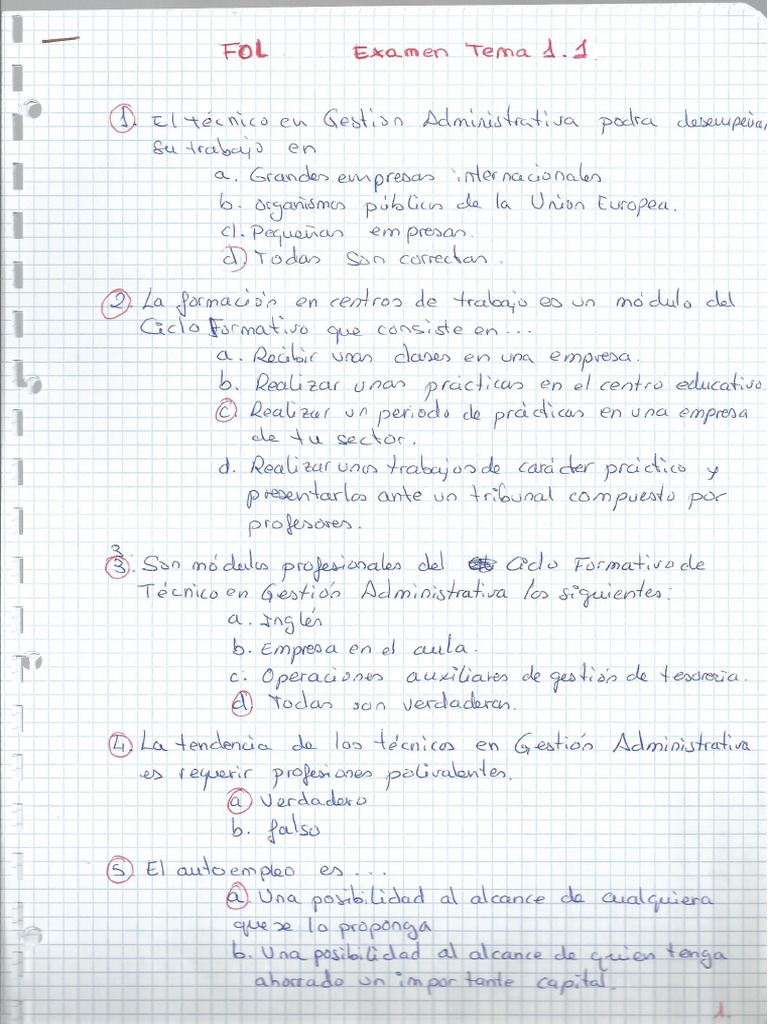 FOL Examen Tema 1.1
1. El técnico en Gestión Administrativa podra desempeñar
su trabajo en
a. Grandes empresas internacionales
b. organismos públicos de la Union Europea.
c. Pequeñas empresas.
d) Todas son correctas.
2. La formación en centros de trabajo es un módulo del
Ciclo Formativo que consiste en...
a. Recibir unas clases en una empresa.
b. Realizar unas prácticas en el centro educativo
c Realizar un periodo de prácticas en una empresa
de tu sector.
d. Realizar unos trabajos de carácter práctico y
presentarlos ante un tribunal compuesto por
profesores.
3
3. Son módulos profesionales del Ciclo Formativo de
Técnico en Gestión Administrativa los siguientes:
a. Inglés
b. Empresa en el aula.
c. Operaciones auxiliares de gestión de tesoreria.
d) Todas son verdaderas.
4. La tendencia de los técnicos en Gestión Administrativa
es requerir profesiones polivalentes.
a Verdadero
b. falso
5. El autoempleo es ...
a. Una posibilidad al alcance de cualquiera
que se lo proponga
b. Una posibilidad al alcance de quien tenga
ahorrado un importante capital.
1.